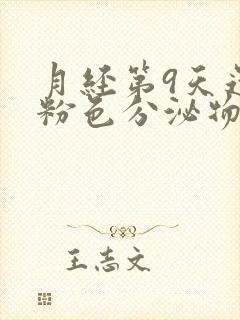 月经第9天还
粉色分泌物
王志文